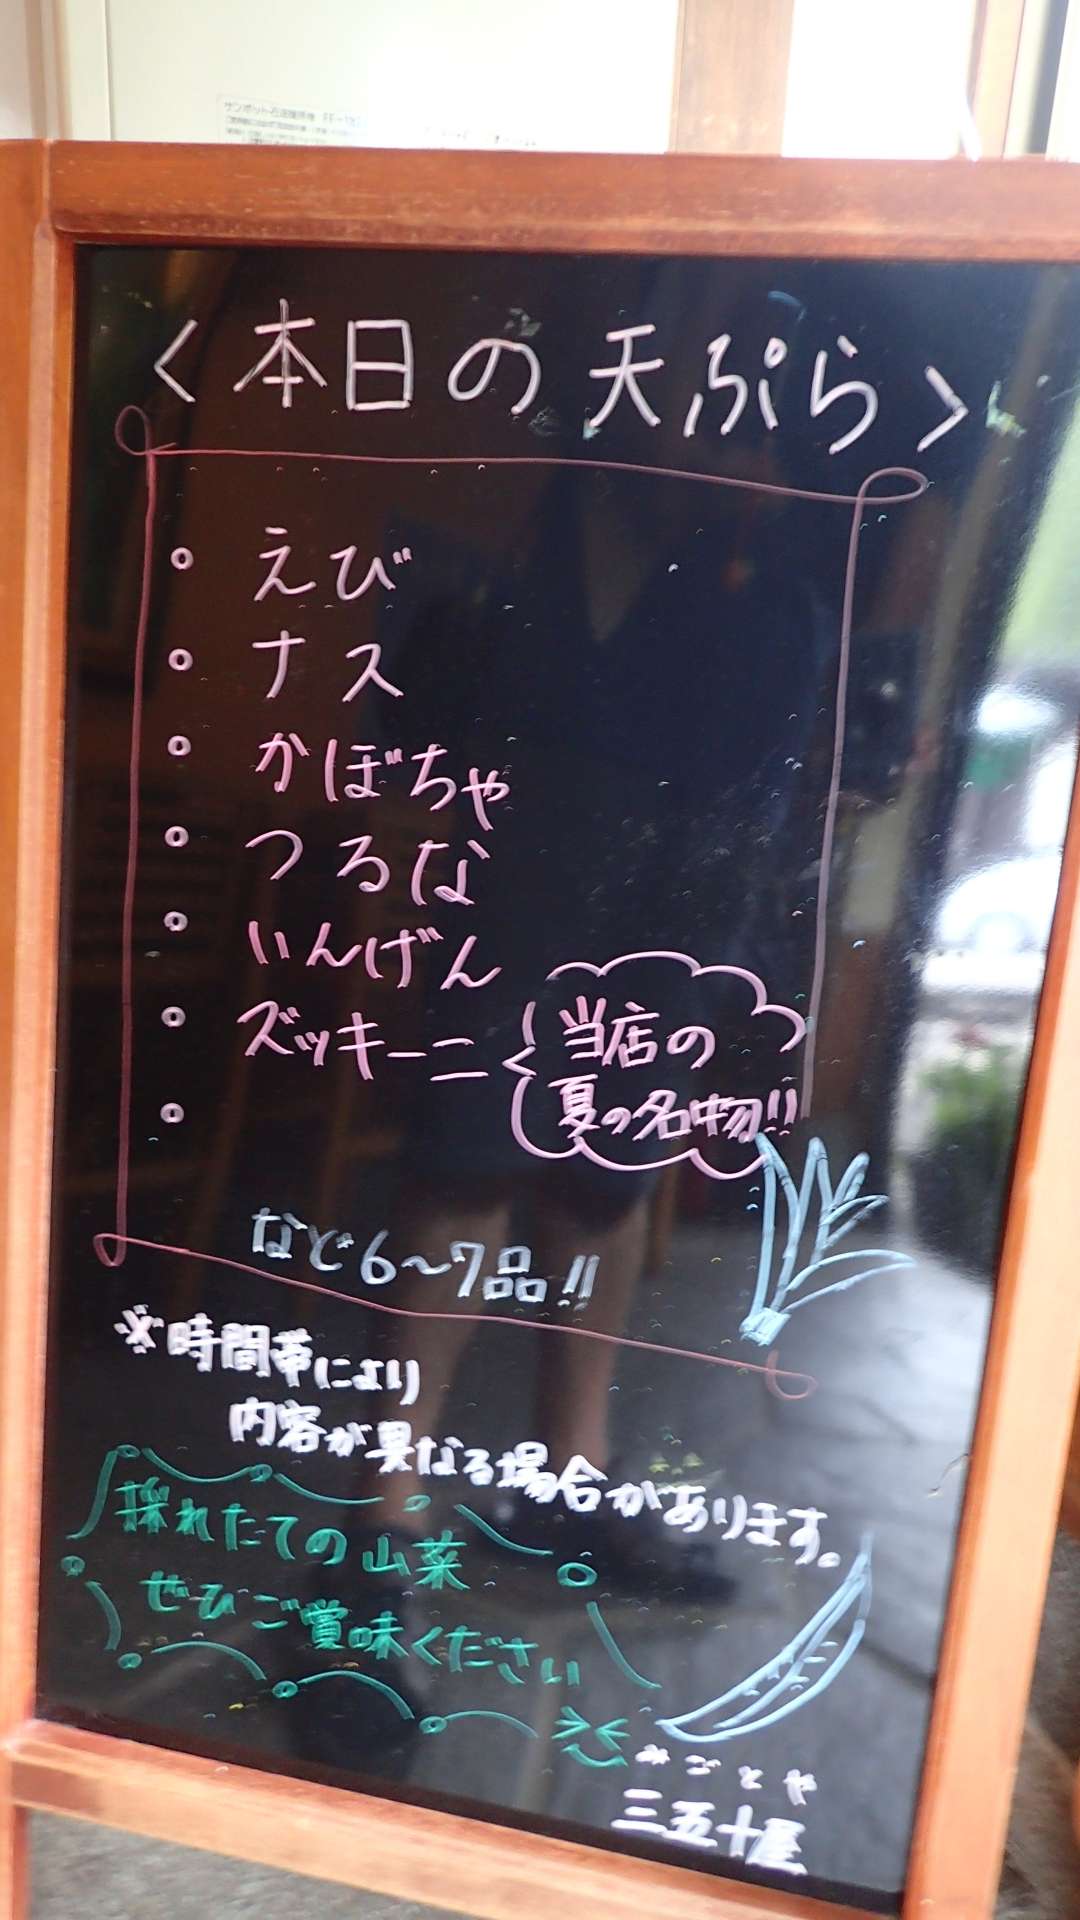 サンポット石油暖房機
<本日の天ぷら>
○ えび
○ ナス
○ かぼちゃ
○ つるな
○ いんげん
○ ズッキーニ
当店の
夏の名物!!
○
など6〜7品!!
※時間帯により
内容が異なる場合があります。
採れたての山菜
ぜひご賞味ください
みごとや
三五十屋